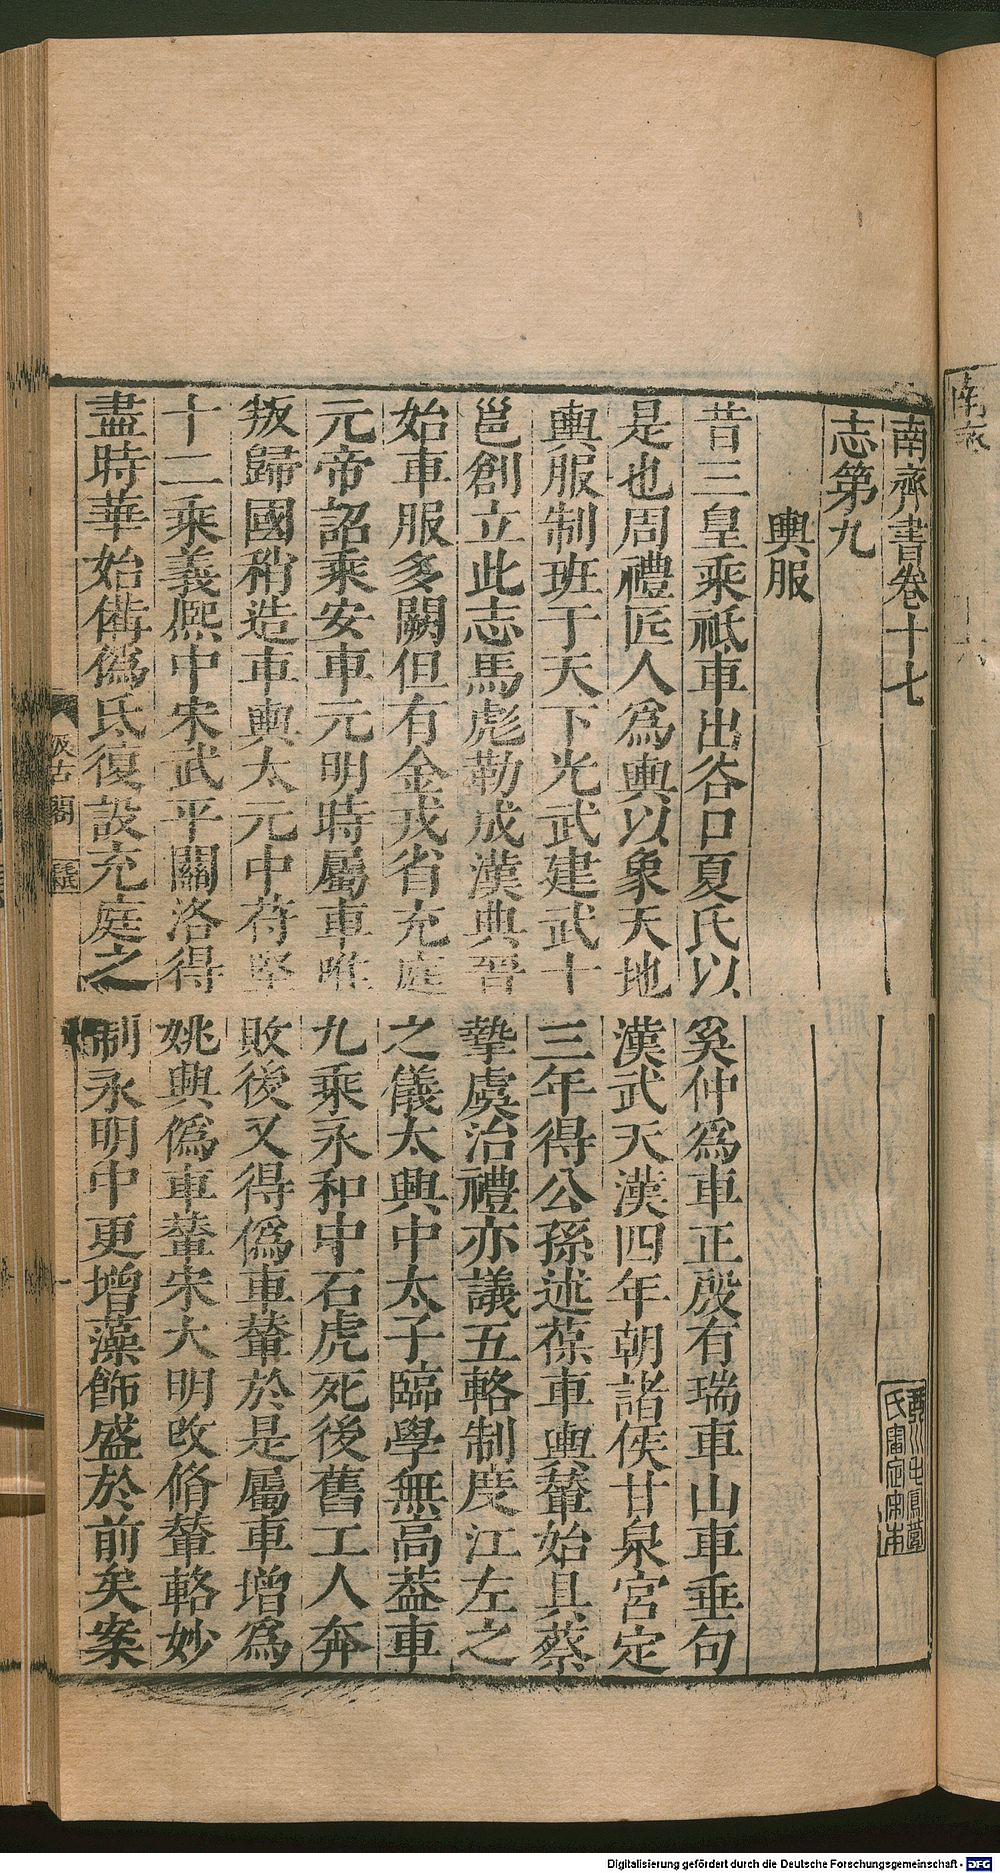 南齊書卷十七
志第九
輿服
昔三皇乘祇車出谷口夏氏以奚仲爲車正殷有瑞車山車垂句
是也周禮匠人爲輿以象天地漢武天漢四年朝諸侯甘泉宮定
輿服制班于天下光武建武十三年得公孫述葆車輿輦始具蔡
邕創立此志馬彪勒成漢典晉摯虞治禮亦議五輅制度江左之
始車服多闕但有金戎省充庭之儀太興中太子臨學無高葢車
元帝詔乘安車元明時屬車唯九乘永和中石虎死後舊工人奔
叛歸國稍造車輿太元中苻堅敗後又得僞車輦於是屬車增爲
十二乘義熙中宋武平關洛得姚興僞車輦宋大明改脩輦輅妙
盡時華始備僞氐復設充庭之制永明中更增藻飾盛於前矣案
汲古閣
Digitalisierung gefördert durch die Deutsche Forschungsgemeinschaft - DFG